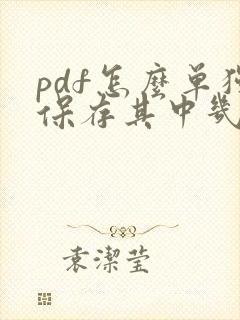 pdf怎麼单独
保存其中几
袁潔莹